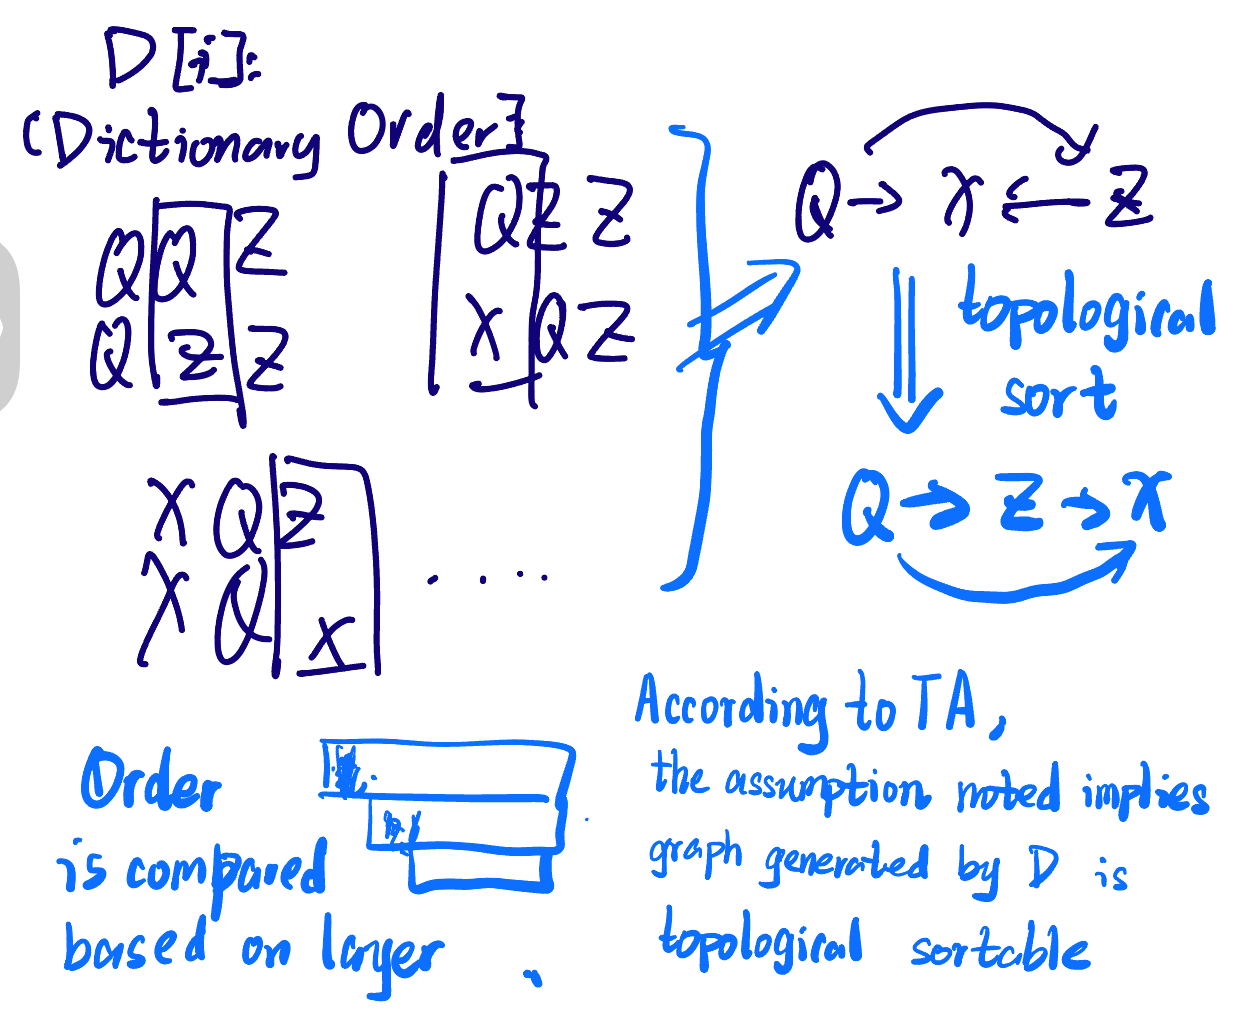 D[i]:
(Dictionary Order]
QQZ
QZZ
QZZ
XQZ
XQZ
XQ X
....
Q → X ← Z
topological
sort
Q → Z → X
Order
is compared
based on layer.
According to TA,
the assumption noted implies
graph generated by D is
topological sortable